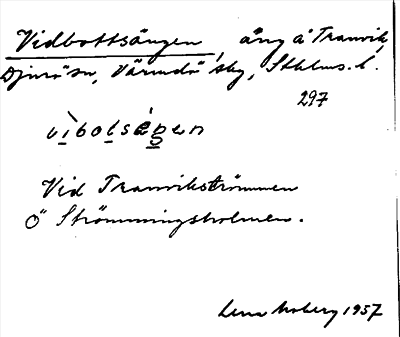 Vidbottsängen, äng å Tranvik,
Djurö sn, Värmdö skg, Sthlms l.
297
vìbolséŋen
Vid Tranvikströmmen
Ö Strömmingsholmen.
Lena Moberg 1957